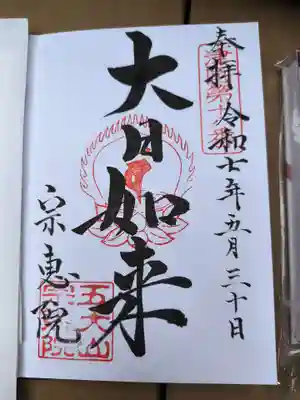 奉拝 令和七年五月三十日
大日如来
宗恵院
五大山